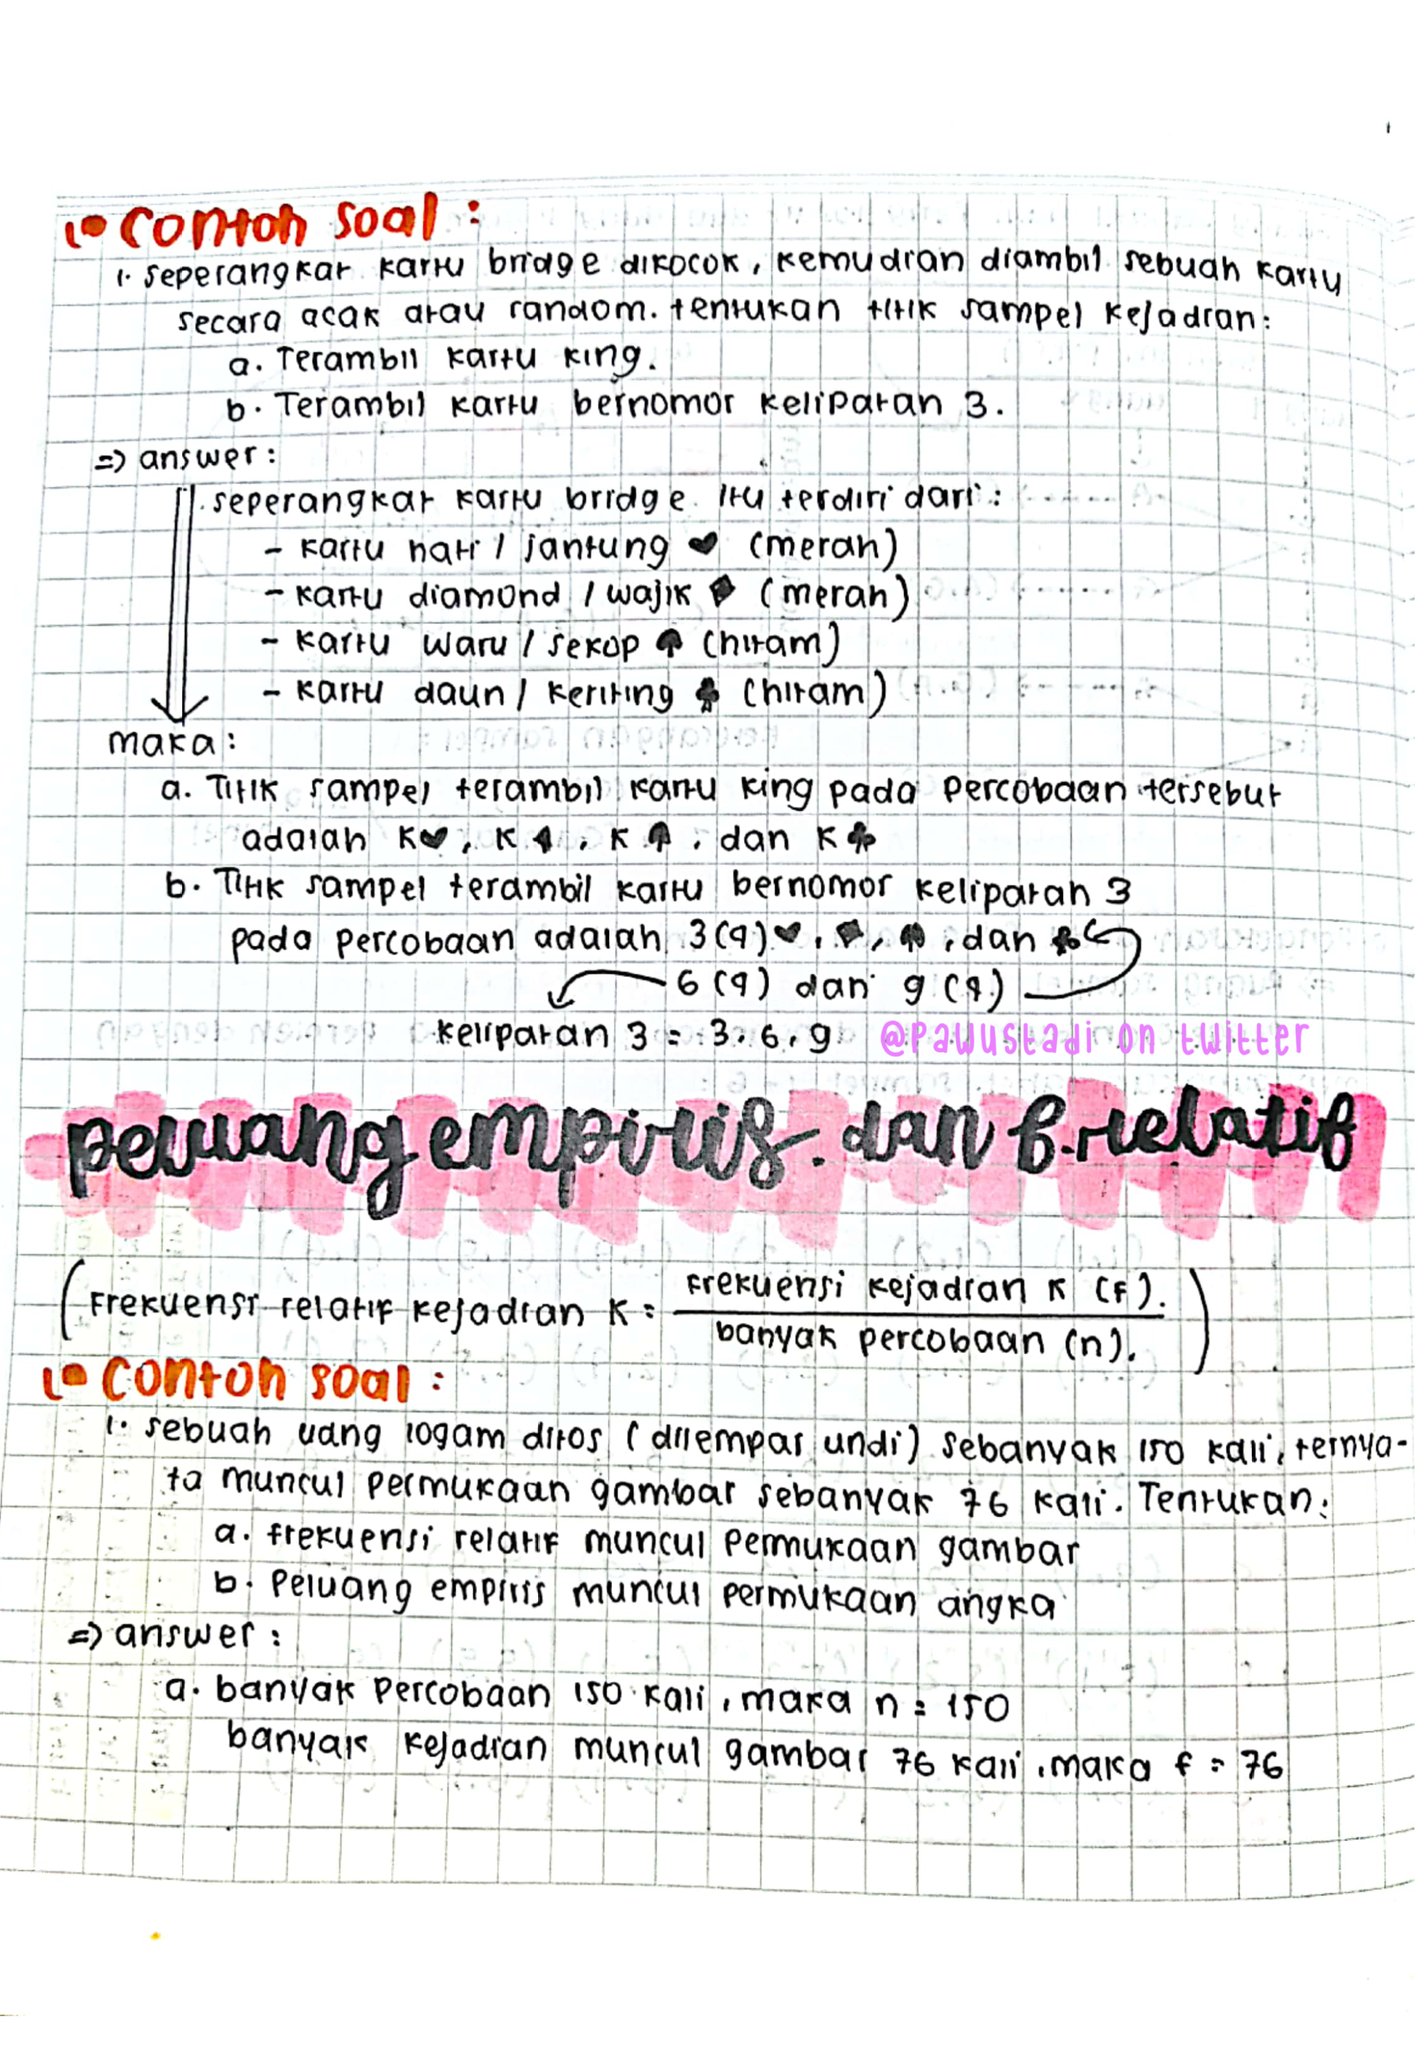 Contoh soal :
1. seperangkat kartu bridge dikocok, kemudian diambil sebuah kartu
secara acak atau random. tentukan titik sampel kejadian:
a. Terambil kartu king.
b. Terambil kartu bernomor kelipatan 3.
=> answer :
seperangkat kartu bridge itu terdiri dari :
- kartu hati / jantung ♥ (merah)
- kartu diamond / wajik ♦ (merah)
- kartu waru / sekop ♠ (hitam)
- kartu daun / keriting ♣ (hitam)
maka :
a. Titik sampel terambil kartu king pada percobaan tersebut
adalah K♥, K♦, K♠, dan K♣
b. Titik sampel terambil kartu bernomor kelipatan 3
pada percobaan adalah 3(4)♥, ♦, ♠, dan ♣
6 (4) dan 9 (4)
kelipatan 3 = 3, 6, 9
@pawustadi on twitter
peluang empiris. dan f. relatif
(Frekuensi relatif kejadian K = frekuensi kejadian K (f). / banyak percobaan (n).)
Contoh soal :
1. sebuah uang logam ditos (dilempar undi) sebanyak 150 kali, ternya-
ta muncul permukaan gambar sebanyak 76 kali. Tentukan:
a. frekuensi relatif muncul permukaan gambar
b. peluang empiris muncul permukaan angka
=> answer :
a. banyak percobaan 150 kali, maka n = 150
banyak kejadian muncul gambar 76 kali, maka f = 76